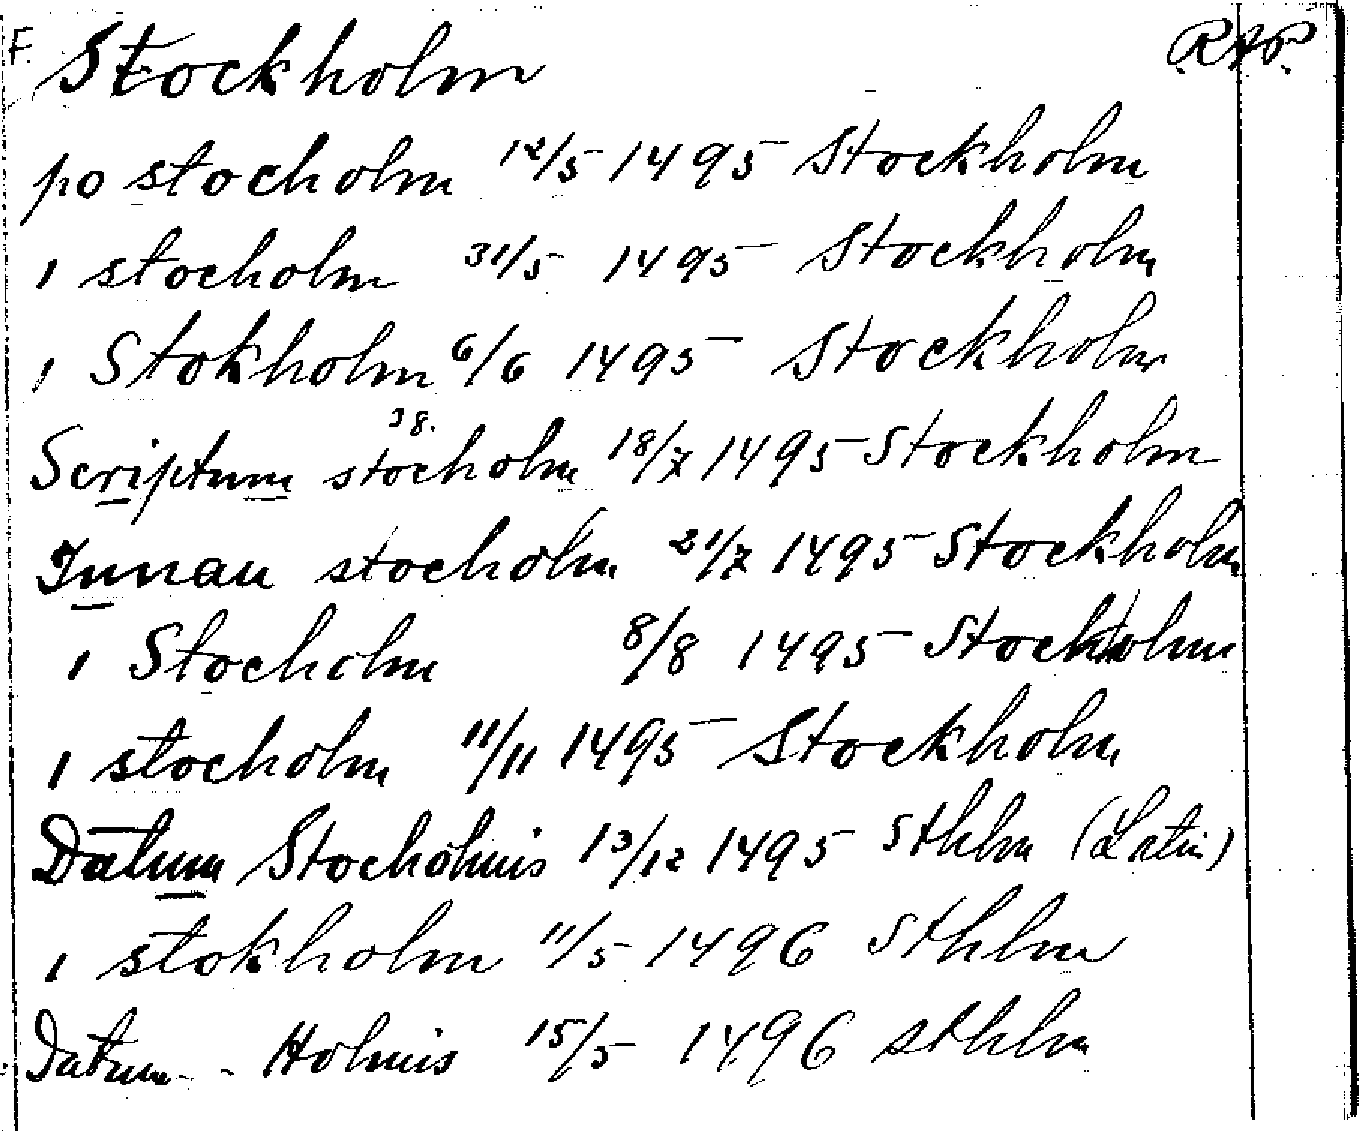 F. Stockholm RAP.
po stocholm 12/5 1495 Stockholm
i stocholm 31/5 1495 Stockholm
i Stokholm 6/6 1495 Stockholm
38.
Scriptum stocholm 18/7 1495 Stockholm
Innan stocholm 21/7 1495 Stockholm
i Stocholm 8/8 1495 Stockholm
i stocholm 11/11 1495 Stockholm
Datum Stocholmis 13/12 1495 Sthlm (Latin)
i stokholm 11/5 1496 Sthlm
Datum - Holmis 15/5 1496 sthlm